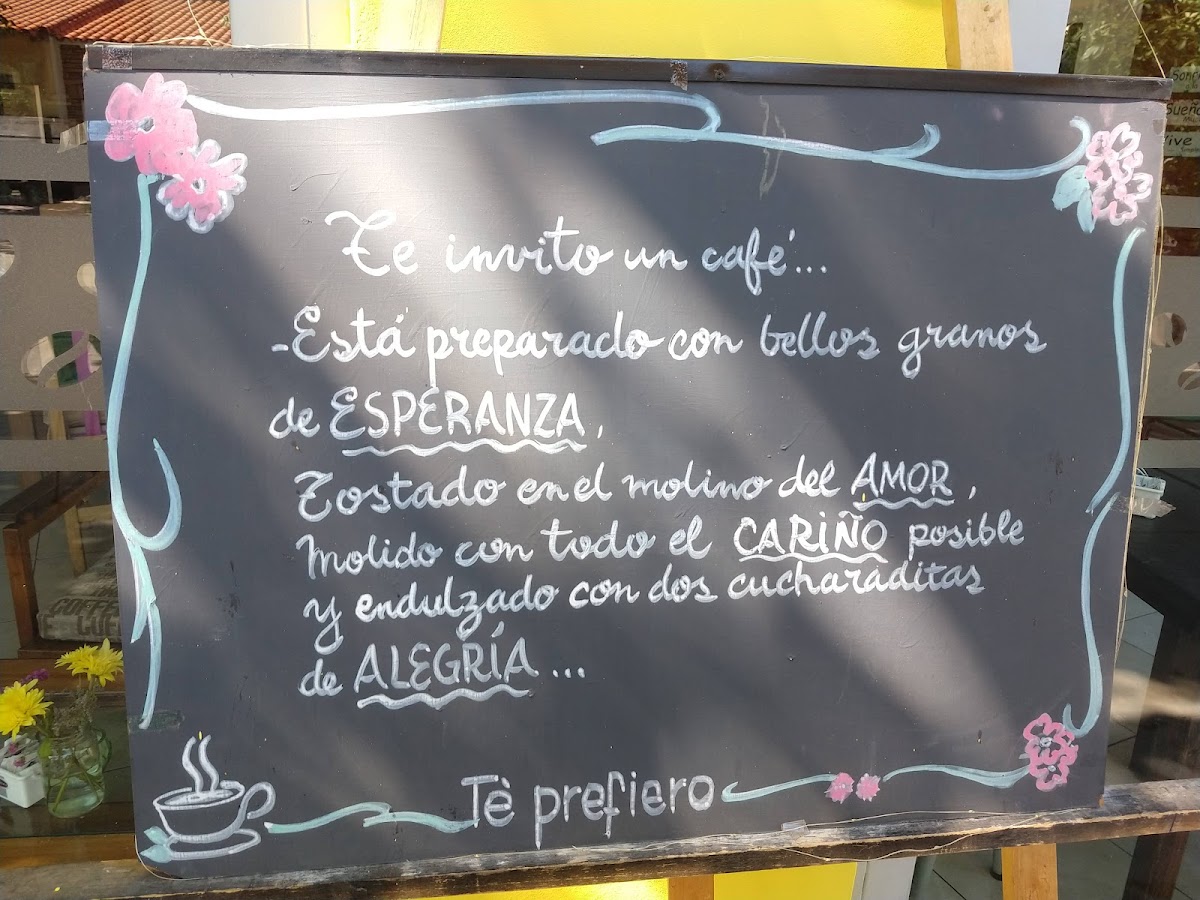 Te invito un café...
-Está preparado con bellos granos
de ESPERANZA,
Tostado en el molino del AMOR,
Molido con todo el CARIÑO posible
y endulzado con dos cucharaditas
de ALEGRÍA...
Tè prefiero
COFFEE